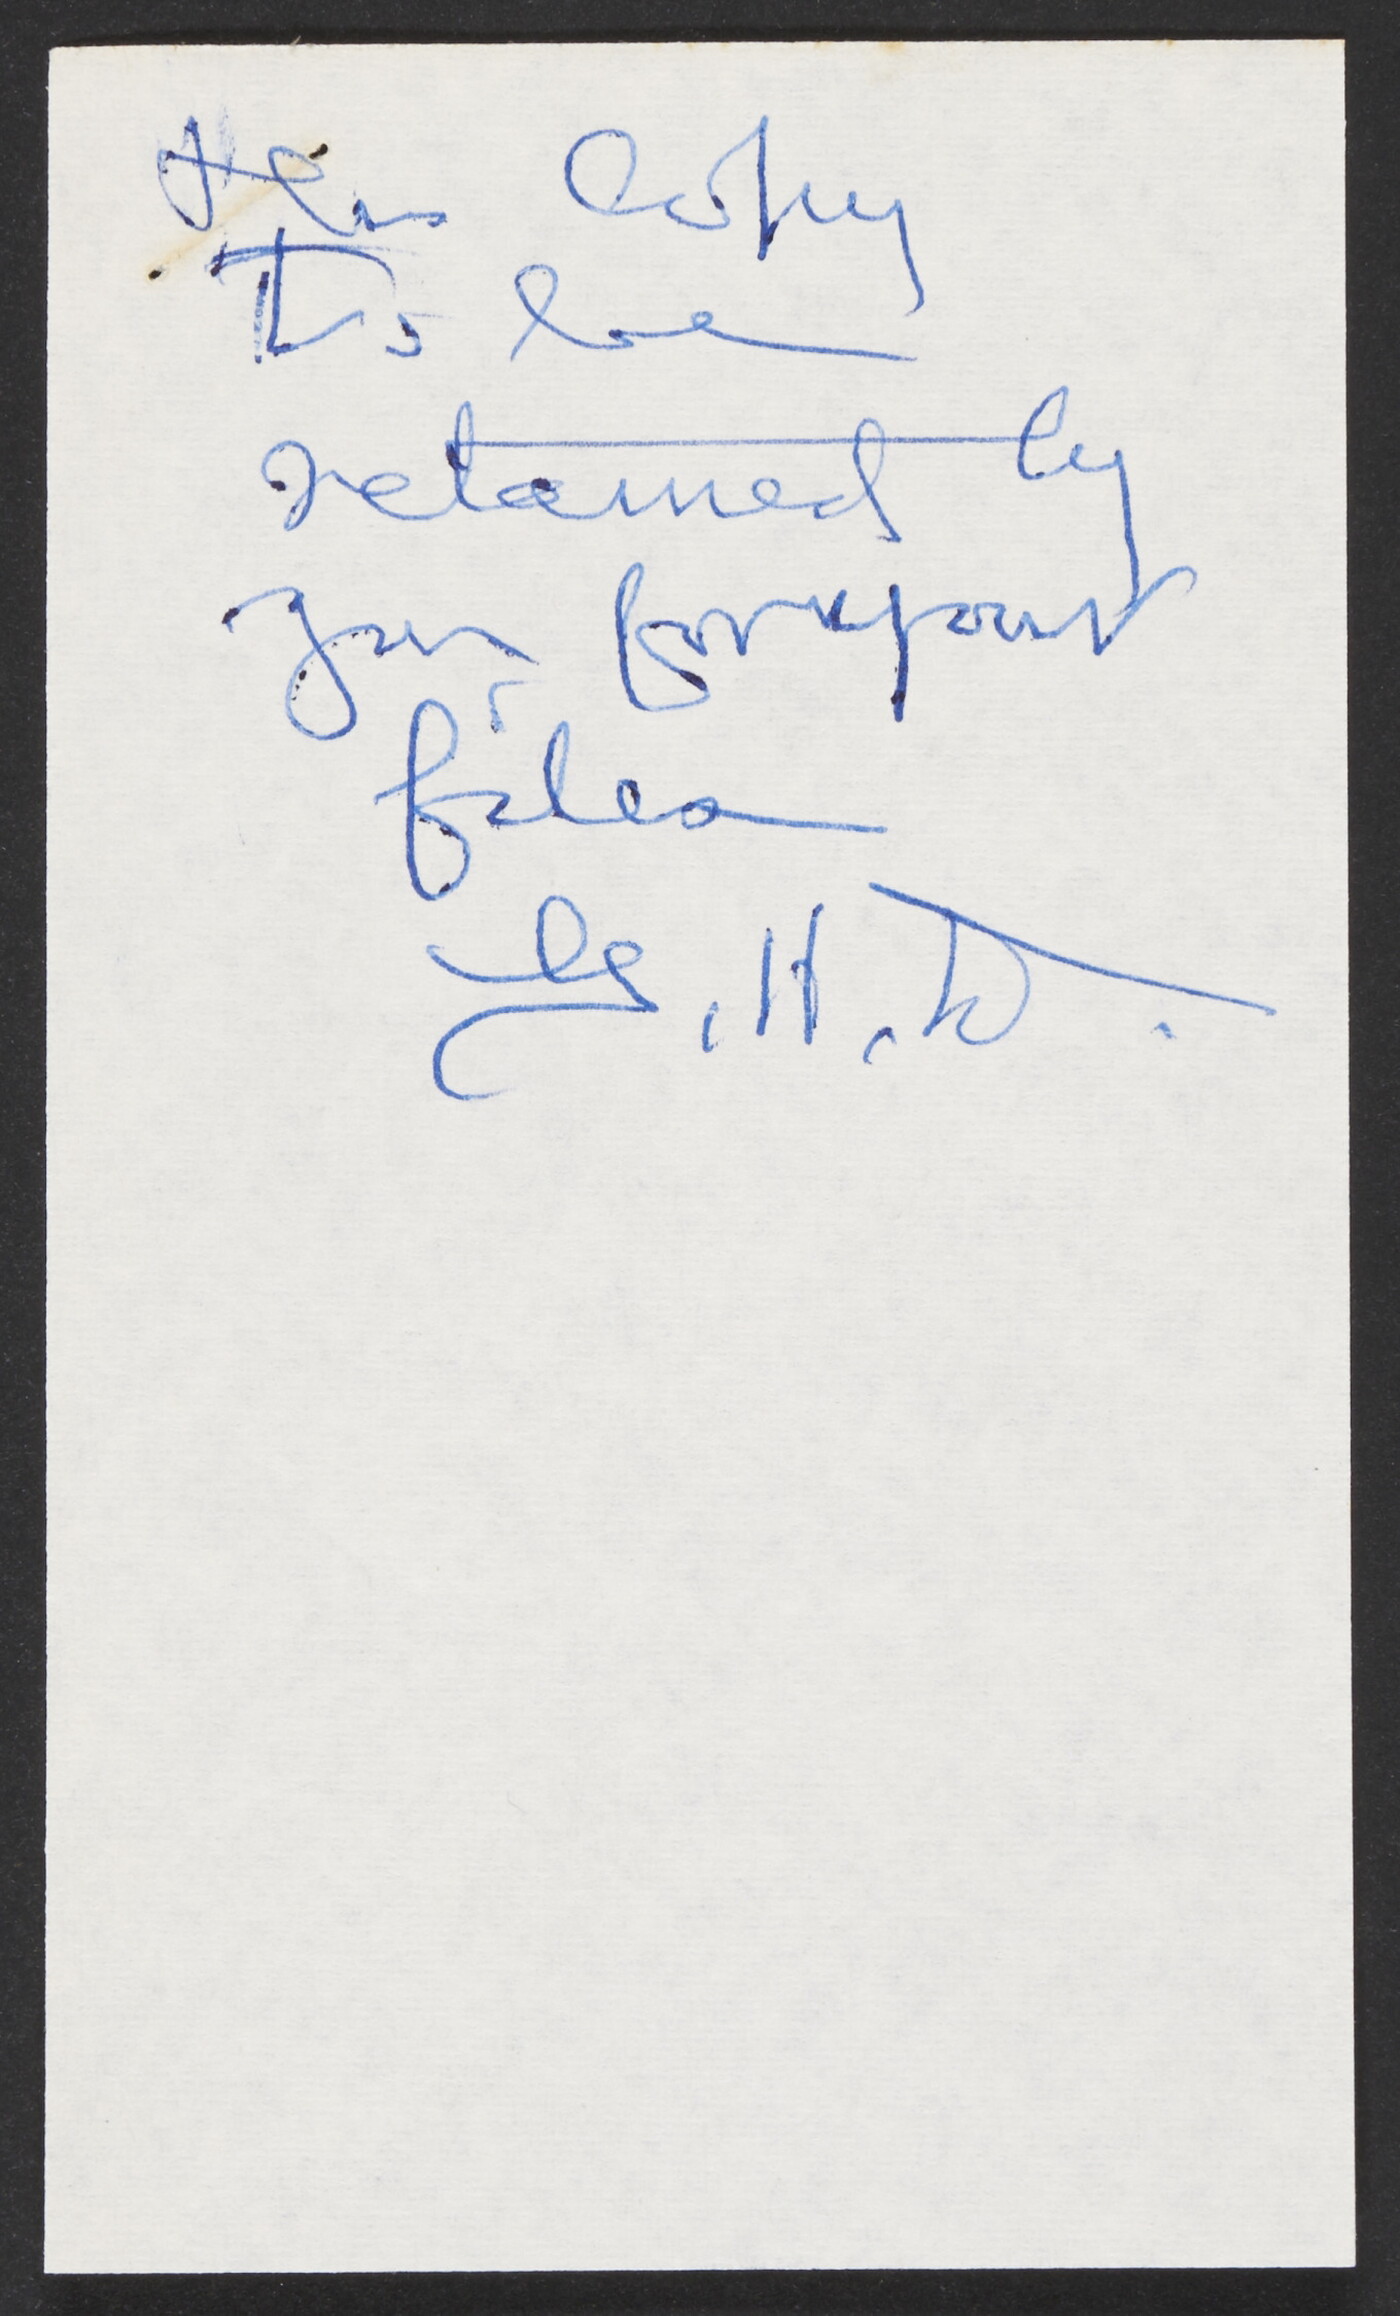 This Copy
To be
retained by
you for your
files
G. H. D.